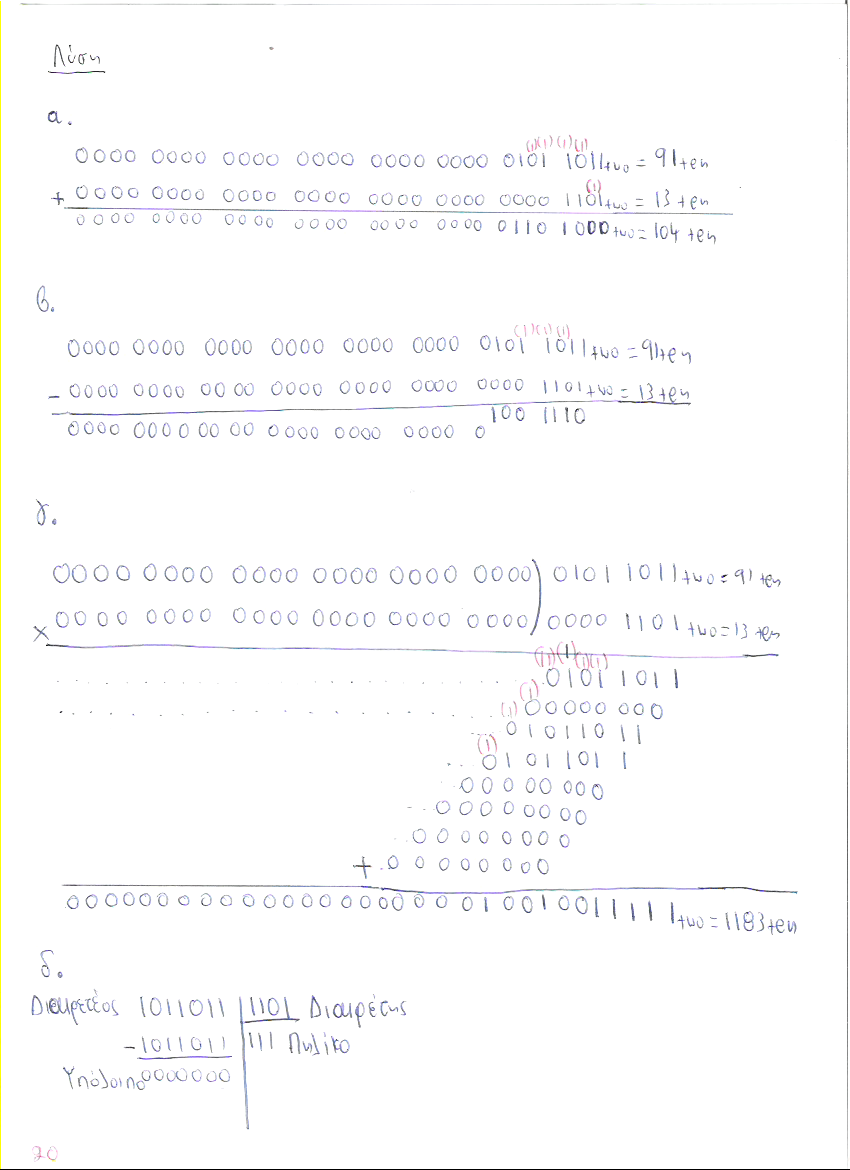 Λύση
α.
(1)(1)(1)(1)
0000 0000 0000 0000 0000 0000 0101 1011two = 91ten
(1)
+ 0000 0000 0000 0000 0000 0000 0000 1101two = 13ten
0000 0000 0000 0000 0000 0000 0110 1000two = 104ten
β.
(1)(1)(1)
0000 0000 0000 0000 0000 0000 0101 1011two = 91ten
- 0000 0000 0000 0000 0000 0000 0000 1101two = 13ten
0000 0000 0000 0000 0000 0000 0100 1110
γ.
0000 0000 0000 0000 0000 0000) 0101 1011two = 91ten
× 0000 0000 0000 0000 0000 0000) 0000 1101two = 13ten
(1)(1)(1)(1)
01011011
(1)
(1)00000000
01011011
(1)
01011011
00000000
00000000
00000000
+ 00000000
0000000000000000000010010011111two = 1183ten
δ.
Διαιρετέος 1011011 | 1101 Διαιρέτης
-1011011 | 111 Πηλίκο
Υπόλοιπο 0000000
20